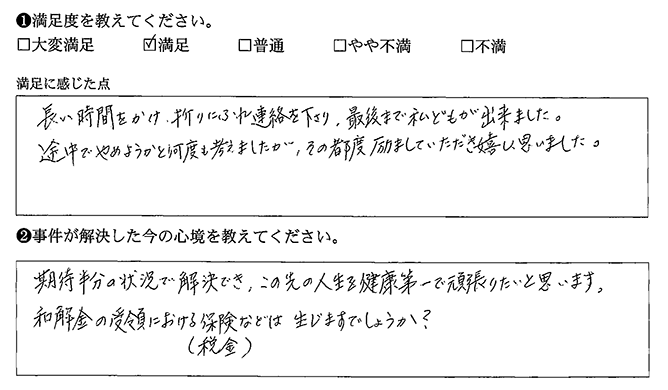 ❶満足度を教えてください。
□大変満足 ☑満足 □普通 □やや不満 □不満
満足に感じた点
長い時間をかけ、折りにふれ連絡を下さり、最後まで私どもが出来ました。
途中でやめようかと何度も考えましたが、その都度励ましていただき嬉しく思いました。
❷事件が解決した今の心境を教えてください。
期待半分の状況で解決でき、この先の人生を健康第一で頑張りたいと思います。
和解金の受領における保険などは生じますでしょうか？
（税金）